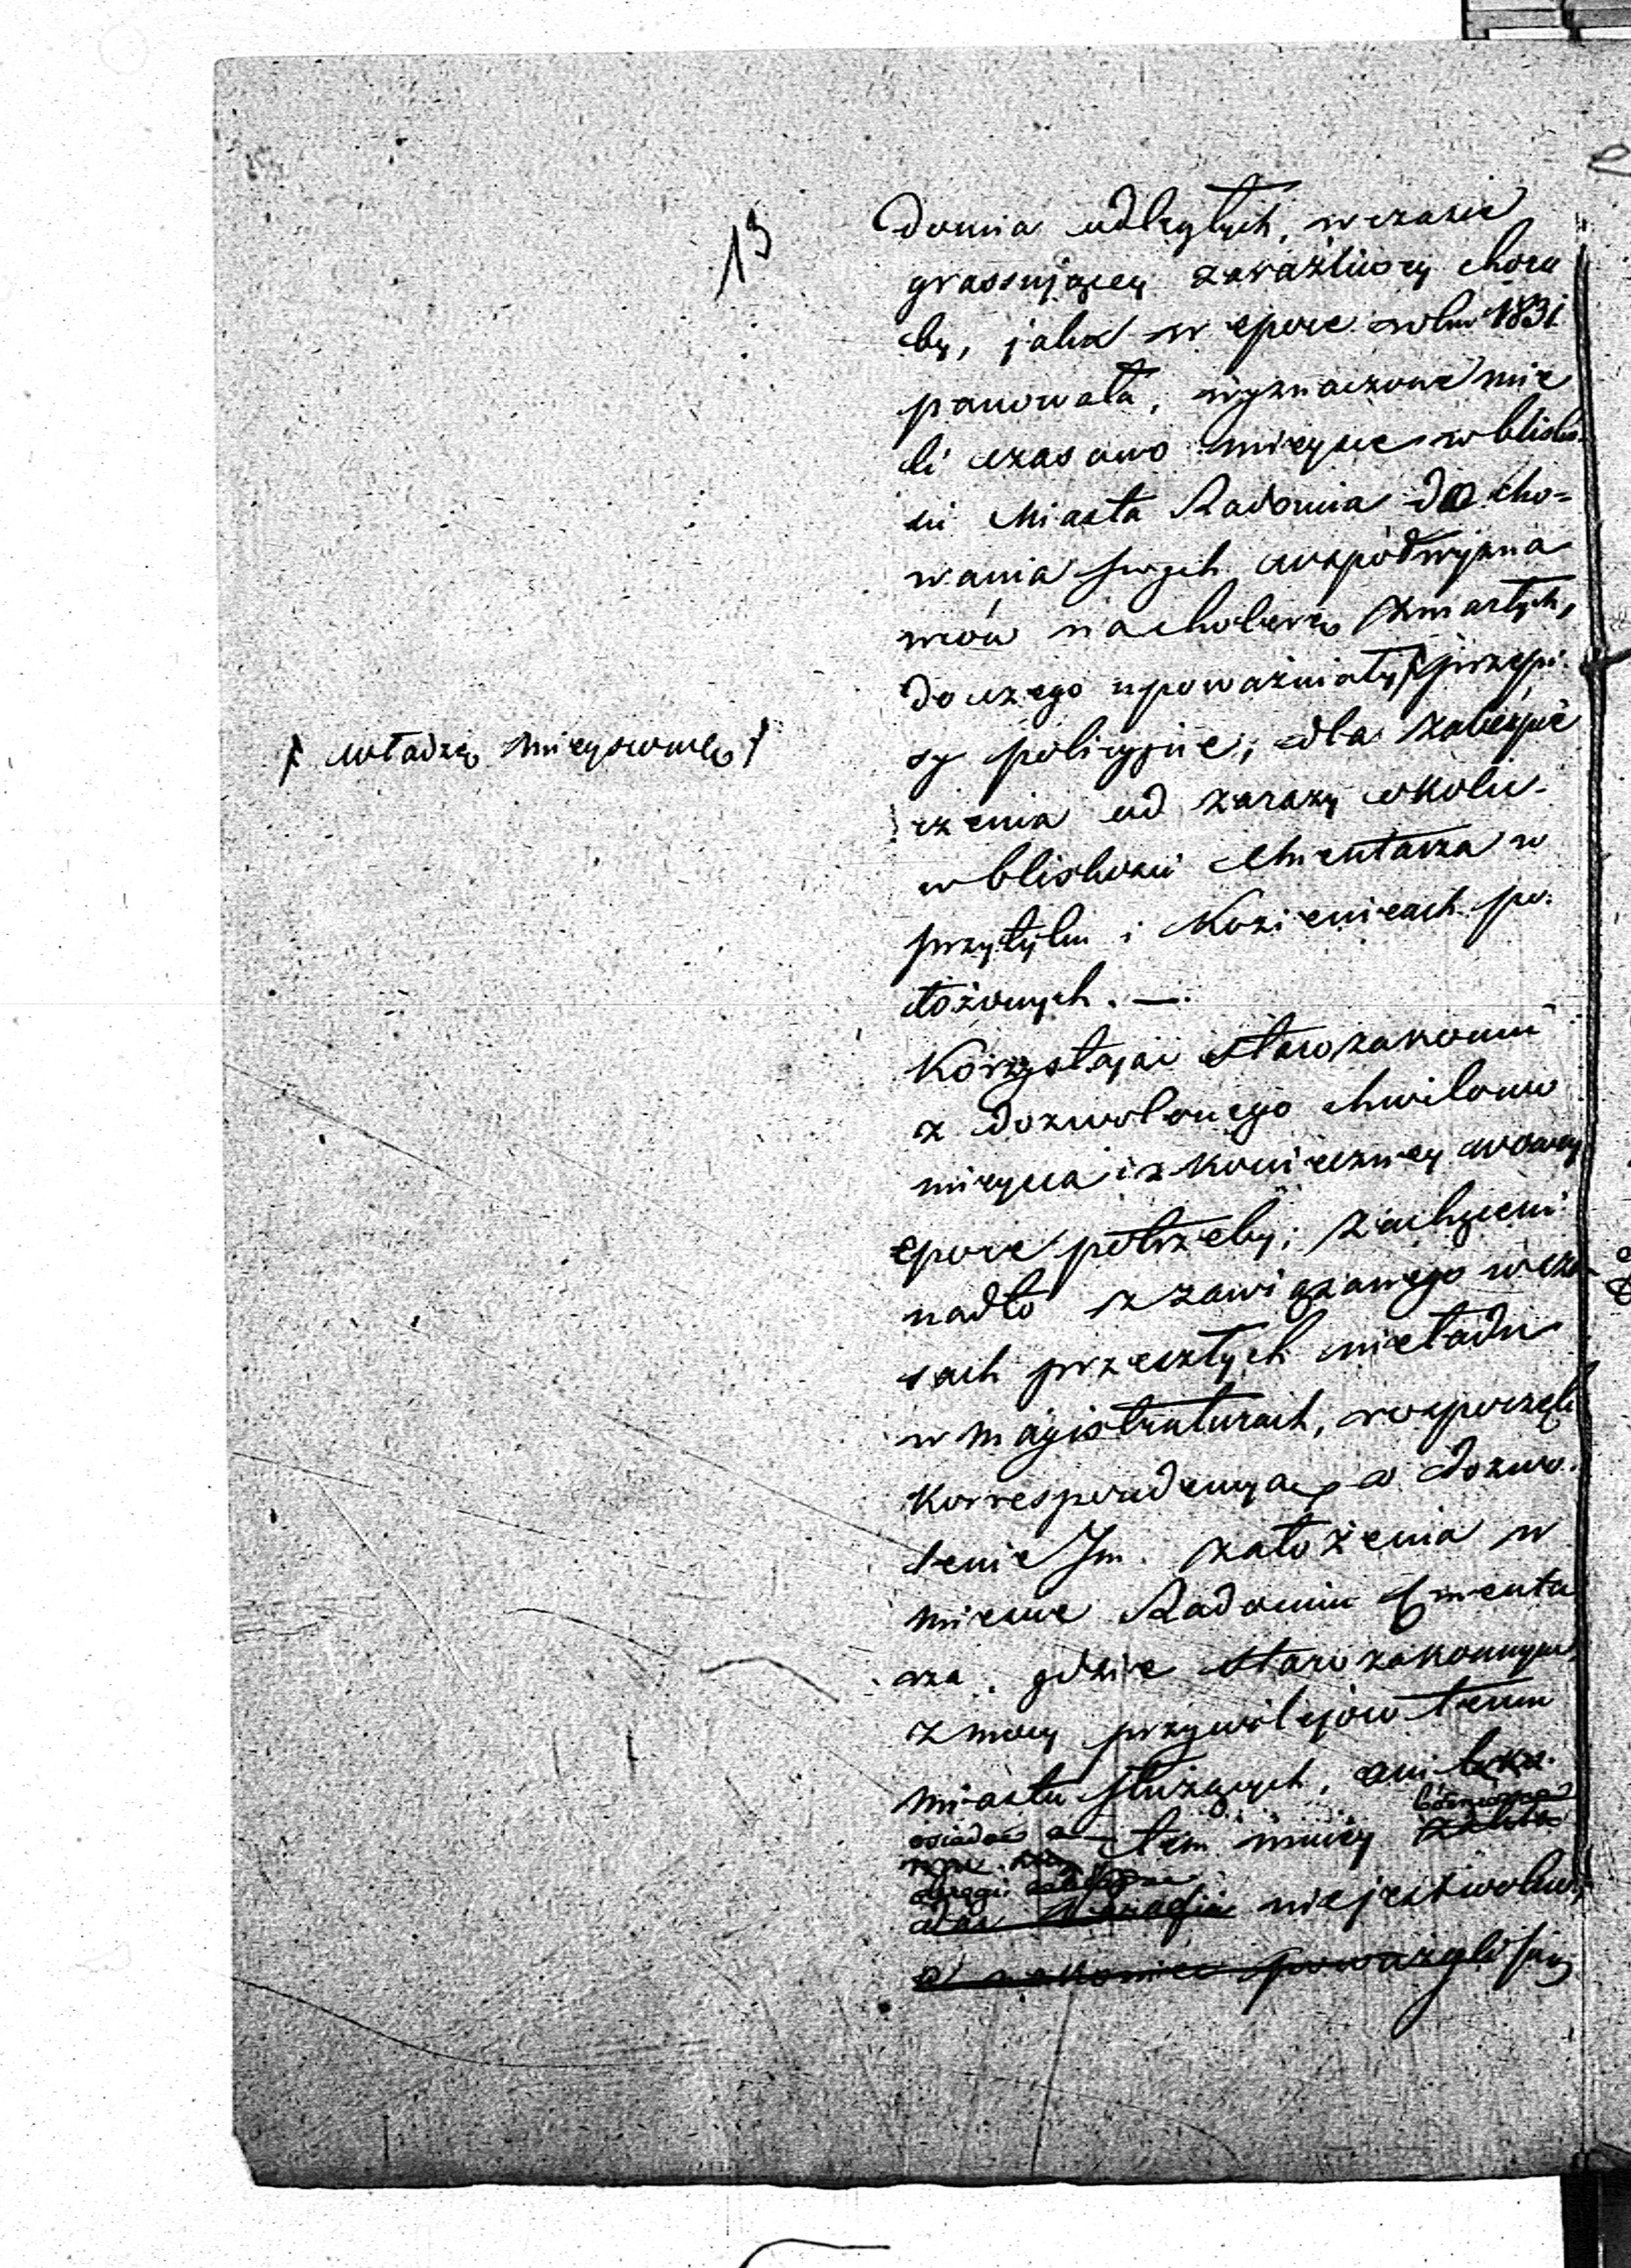 13
domia odległych, w czasie
grassującey zaraźliwey choro
by, jaka w epoce roku 1831
panowała, wyznaczone mie
li czasowo mieysce w blisko
ści Miasta Radomia do cho=
wania swych współwyzna
wców na cholerę zmarłych,
do czego upoważniały przepi
⌈ władzę mieyscową ⌉
sy policyjne, dla zabezpie
czenia od zarazy okolic
w bliskości Cmentarza w
Przytyku i Kozienicach po
łożonych. —.
Korzystając starozakonni
z dozwolonego chwilowo
mieysca i z konieczney w owey
epoce potrzeby; zachęceni
nadto z zawiązanego w cza
sach przeszłych nieładu
w Magistraturach, rozpoczęli
korrespondencyą o dozwo
lenie Im. założenia w
mieście Radomiu Cmenta
rza, gdzie starozakonnym
z mocy przywilejów temu
miastu służących, ani
osiadać a tem mniey
nie jest wolno,
a nakoniec poważyli się